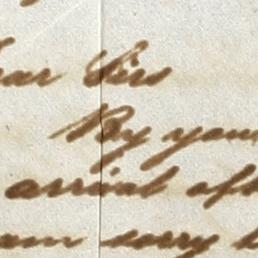 ear Sirs
By your
arrival of
am sorry